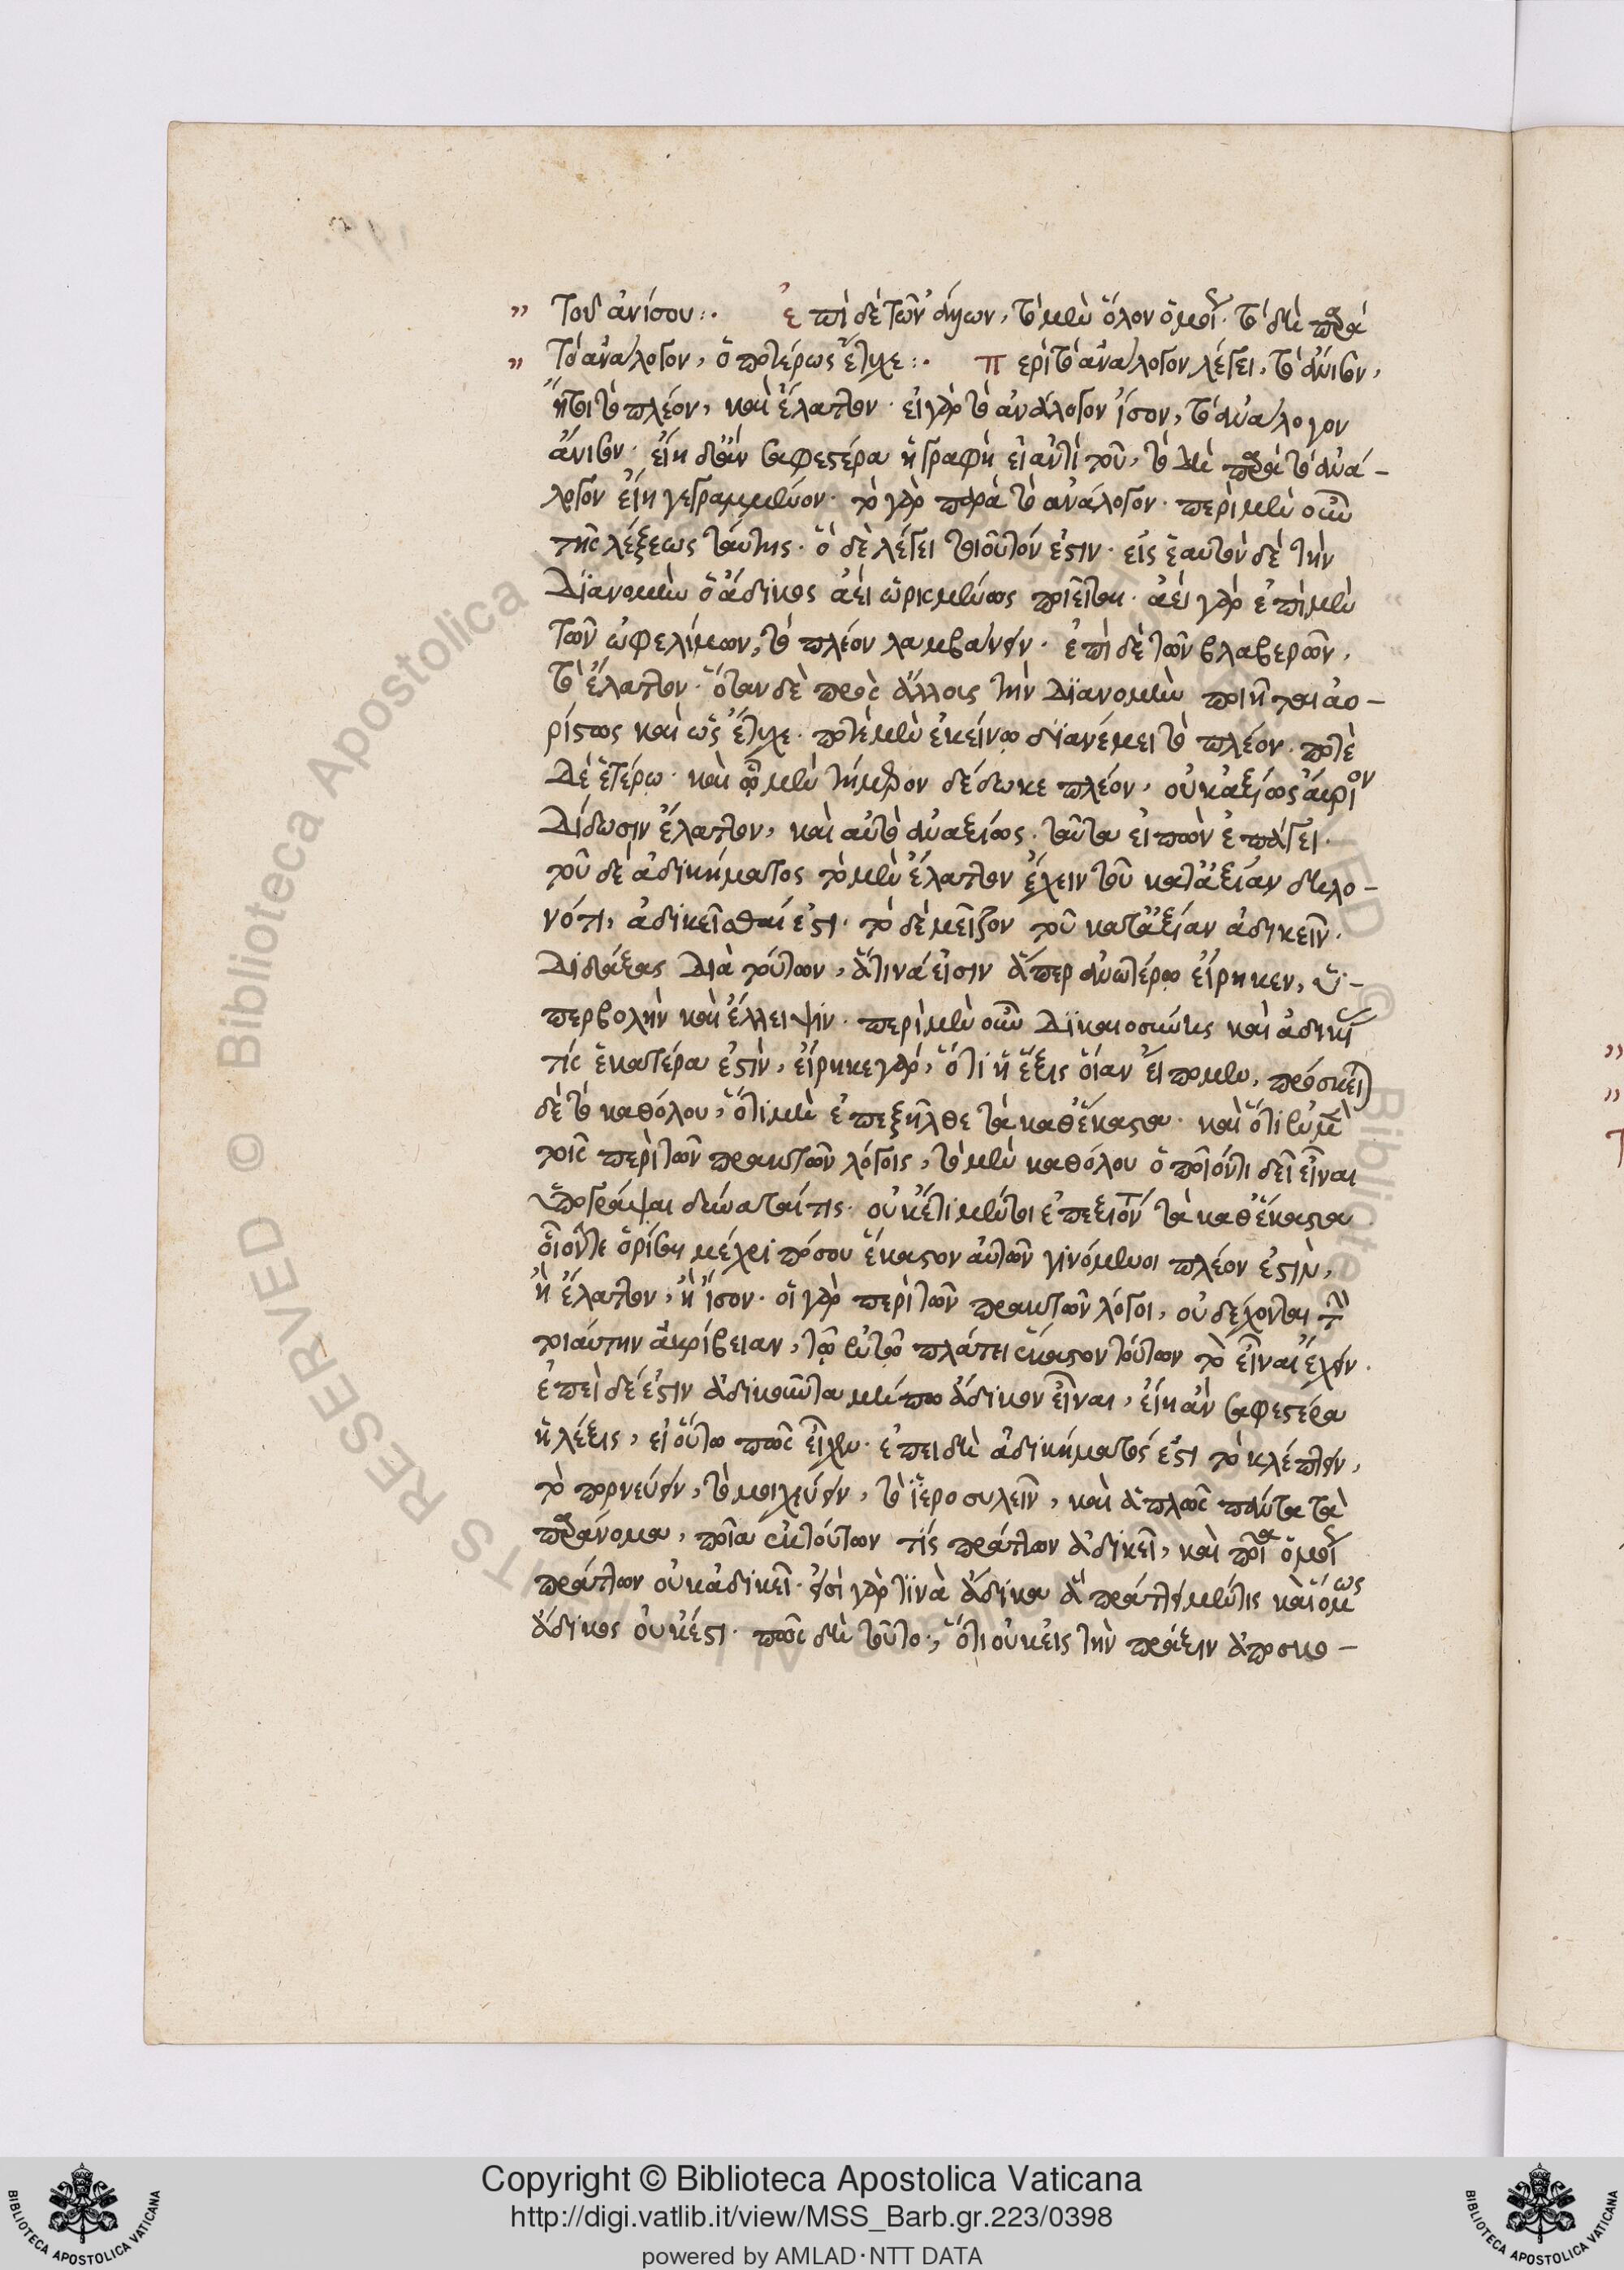 „ τοῦ ἀνίσου:· ἐπὶ δὲ τῶν ἄλλων, τὸ μὲν ὅλον ὁμοί. τὸ δὲ παρὰ
„ τὸ ἀνάλογον, ὁποτέρως ἔτυχε:· περὶ τὸ ἀνάλογον λέγει, τὸ ἄνισον,
ἤτοι τὸ πλέον, καὶ ἔλαττον. εἰ γὰρ τὸ ἀνάλογον ἴσον, τὸ ἀνάλογον
ἄνισον. εἴη δ' ἂν σαφεστέρα ἡ γραφὴ εἰ ἀντὶ τοῦ, τὸ δὲ παρὰ τὸ ἀνά-
λογον εἴη γεγραμμένον. τὸ γὰρ παρὰ τὸ ἀνάλογον. περὶ μὲν οὖν
τῆς λέξεως ταύτης. ὃ δὲ λέγει τοιοῦτόν ἐστιν. εἰς ἑαυτὸν δὲ τὴν
διανομὴν ὁ ἄδικος ἀεὶ ὡρισμένως ποιεῖται. ἀεὶ γὰρ ἐπὶ μὲν
τῶν ὠφελίμων, τὸ πλέον λαμβάνειν. ἐπὶ δὲ τῶν βλαβερῶν,
τὸ ἔλαττον. ὅταν δὲ πρὸς ἄλλοις τὴν διανομὴν ποιῆται ἀο-
ρίστως καὶ ὡς ἔτυχε. ποτὲ μὲν ἐκείνω διανέμει τὸ πλέον. ποτὲ
δὲ ἑτέρω. καὶ ᾧ μὲν τίμιον δέδωκε πλέον, οὐκ ἀξίως ἀκριον
δίδωσιν ἔλαττον, καὶ αὐτὸ ἀναξίως. ταῦτα εἰπὼν ἐπάγει.
τοῦ δὲ ἀδικήματος τὸ μὲν ἔλαττον ἔχειν τοῦ κατ' ἀξίαν δηλο-
νότι, ἀδικεῖσθαί ἐστι. τὸ δὲ μεῖζον τοῦ κατ' ἀξίαν ἀδικεῖν.
διδάξας διὰ τούτων, ἅτινά εἰσιν ἅπερ ἀνωτέρω εἴρηκεν, ὑ-
περβολὴν καὶ ἔλλειψιν. περὶ μὲν οὖν δικαιοσύνης καὶ ἀδικί
τίς ἑκατέρα ἐστὶν, εἴρηκε γὰρ, ὅτι ἡ ἕξις οἵαν εἴπομεν, πρόσκει
δὲ τὸ καθόλου, ὅτι μὴ ἐπεξῆλθε τὰ καθ' ἕκαστα. καὶ ὅτι ἐν μὲ
τοῖς περὶ τῶν πρακτῶν λόγοις, τὸ μὲν καθόλου ὁποῖόν τι δεῖ εἶναι
ὑπογράψαι δύναταί τις. οὐκέτι μέντοι ἐπεξιὸν τὰ καθ' ἕκαστα
οἷόν τε ὁρίσαι μέχρι πόσου ἕκαστον αὐτῶν γινόμενοι πλέον ἐστὶν,
ἢ ἔλαττον, ἢ ἴσον. οἱ γὰρ περὶ τῶν πρακτῶν λόγοι, οὐ δέχονται τὴν
τοιαύτην ἀκρίβειαν, τῷ ἐν τῷ πλάτει ἕκαστον τούτων τὸ εἶναι ἔχειν.
ἐπεὶ δέ ἐστιν ἀδικοῦντα μήπω ἄδικον εἶναι, εἴη ἂν σαφεστέρα
ἡ λέξις, εἰ οὕτω πῶς εἶχεν. ἐπειδὴ ἀδικήματός ἐστι τὸ κλέπτειν,
τὸ πορνεύειν, τὸ μοιχεύειν, τὸ ἱεροσυλεῖν, καὶ ἁπλῶς πάντα τὰ
παράνομα, ποῖα ἐκ τούτων τίς πράττων ἀδικεῖ, καὶ ποῖα ὁμοί
πράττων οὐκ ἀδικεῖ. εἰσὶ γὰρ τινὰ ἄδικα ἃ πράττει μέν τις καὶ ὅμως
ἄδικος οὐκ ἔστι. πῶς δὲ τοῦτο; ὅτι οὐκ εἰς τὴν πρᾶξιν ἀποσκο-
Copyright © Biblioteca Apostolica Vaticana
http://digi.vatlib.it/view/MSS_Barb.gr.223/0398
powered by AMLAD·NTT DATA